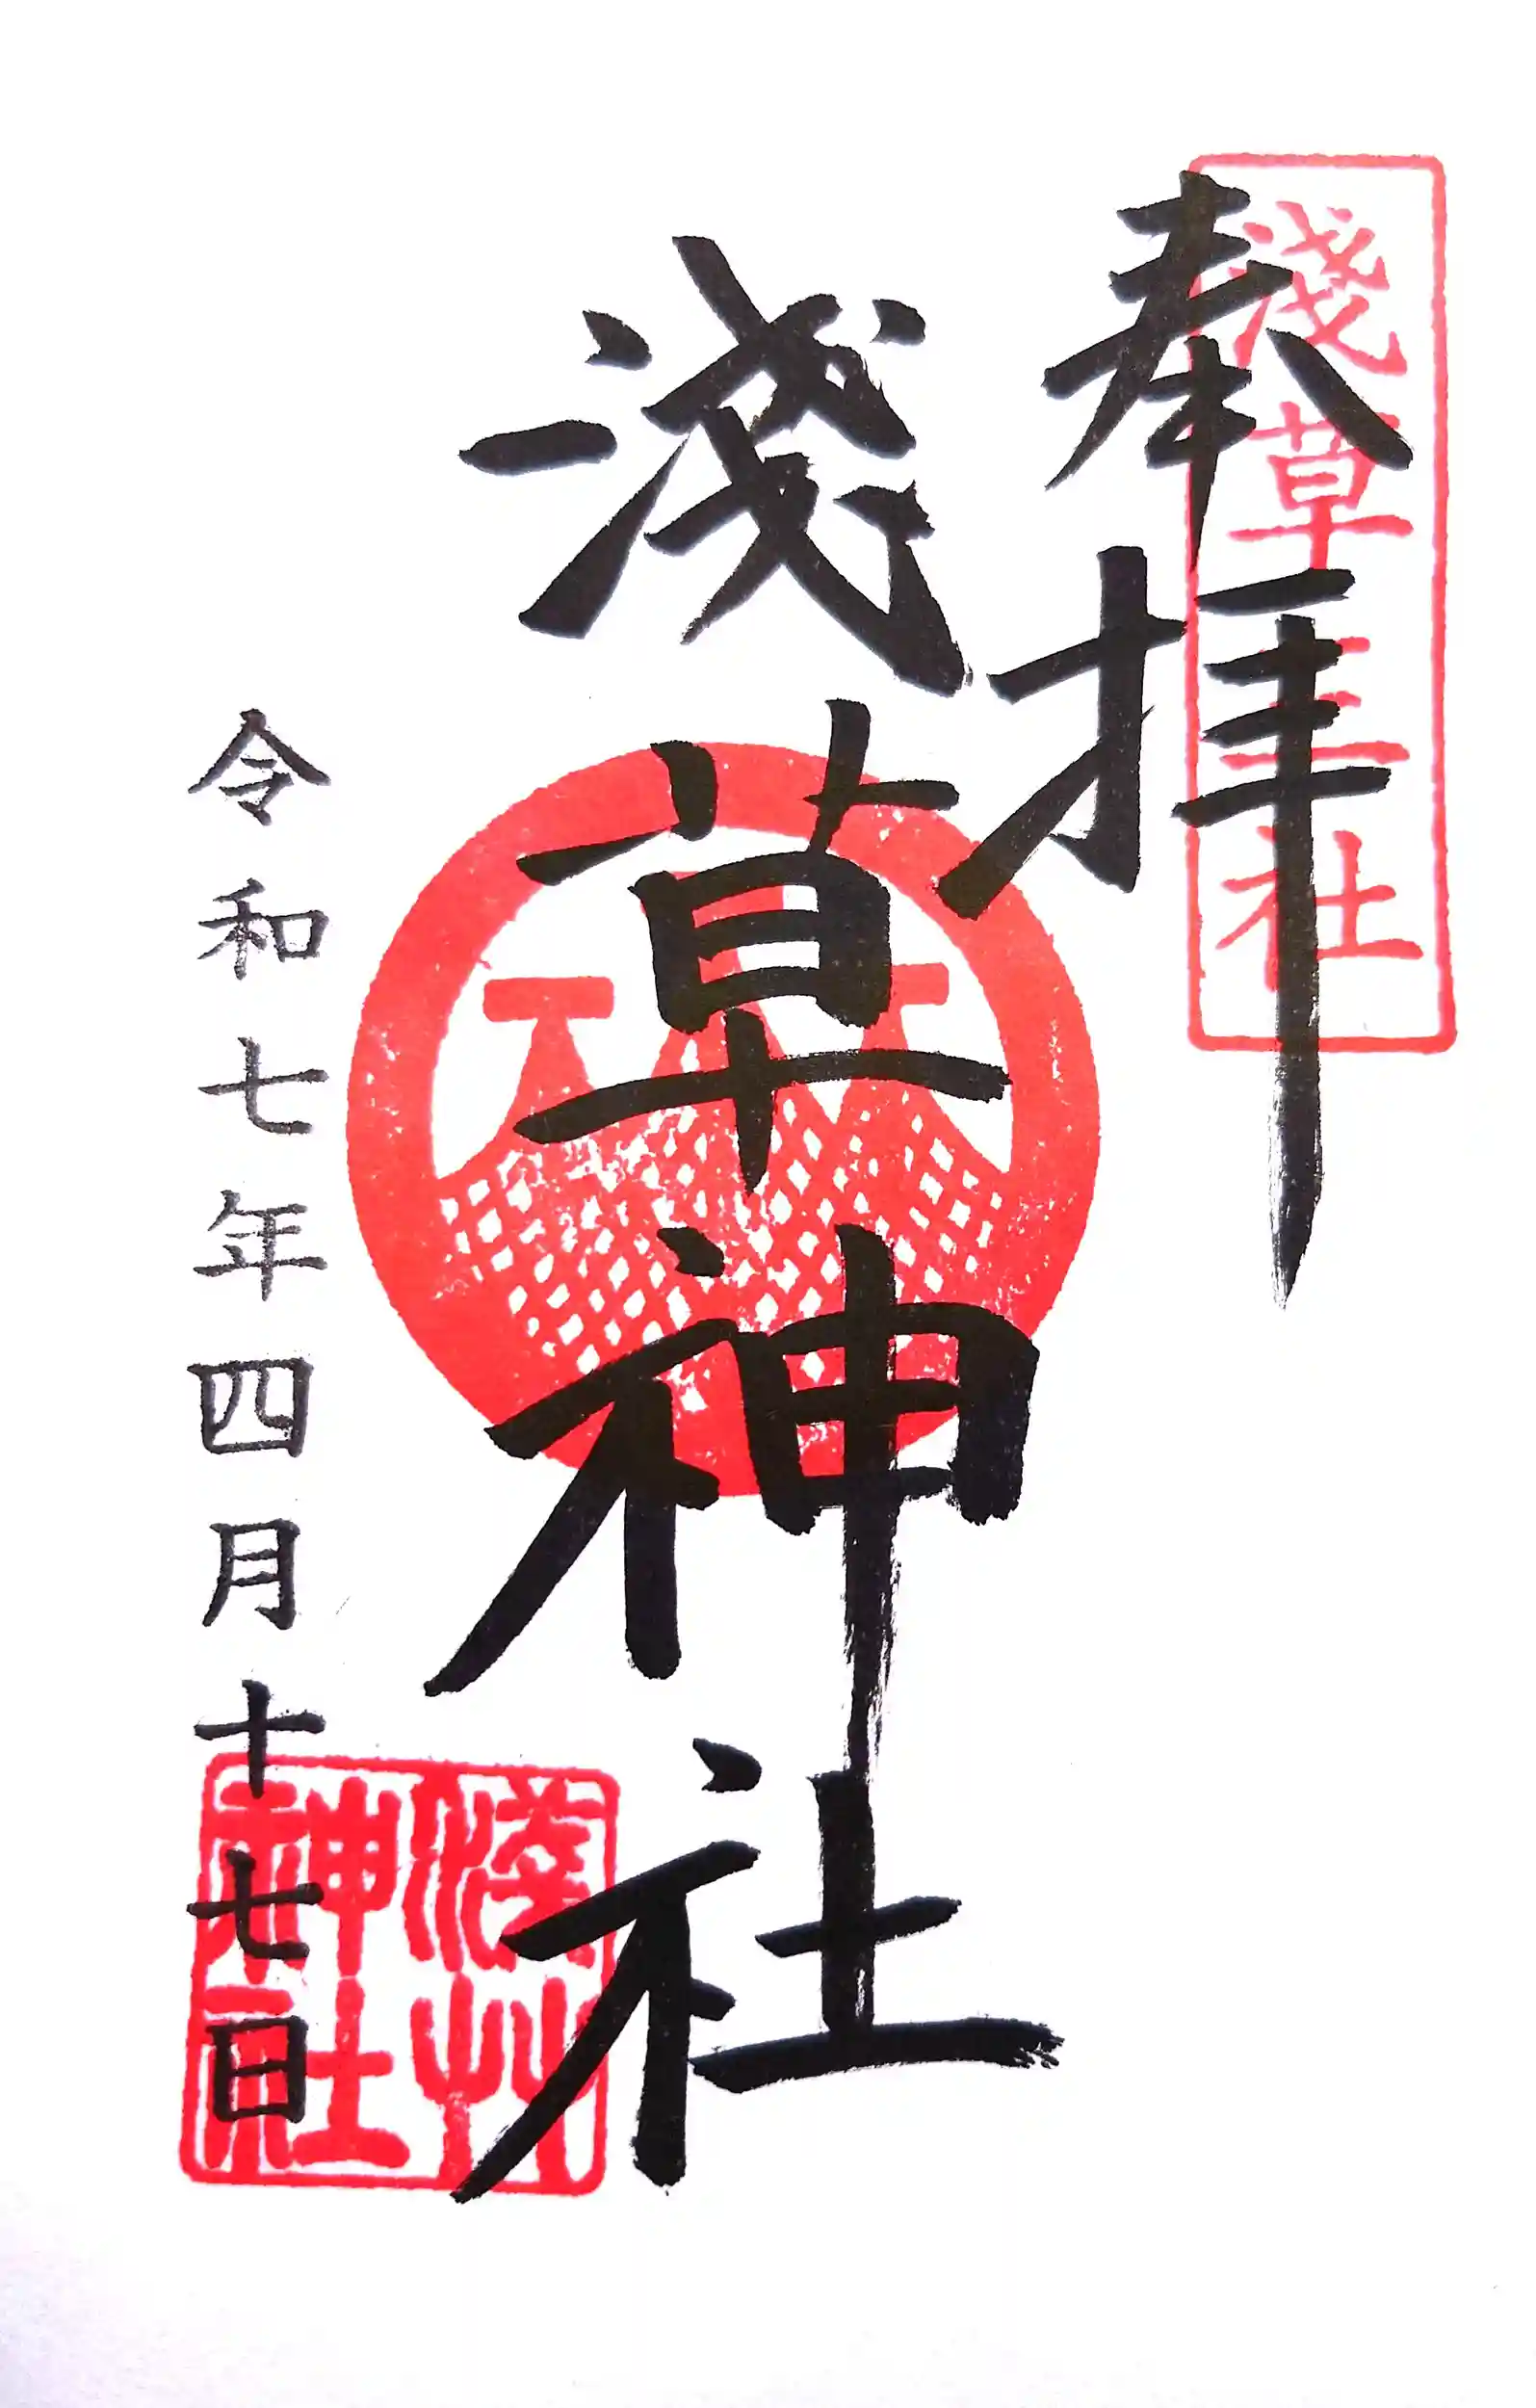 奉拝
淺草三社
淺草神社
令和七年四月十七日
淺艸神社